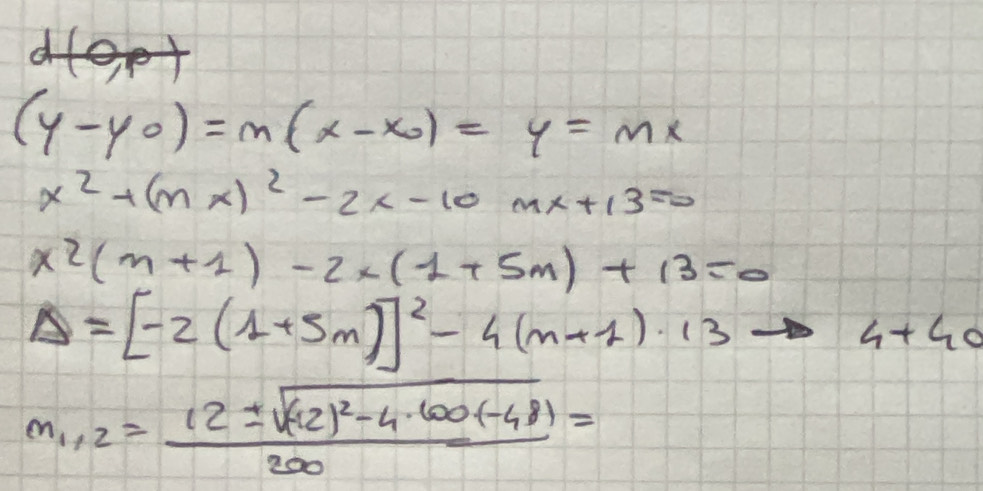 d(O,P)
(y-y0) = m(x-x0) = y = mx
x² + (mx)² - 2x - 10 mx + 13 = 0
x²(m+1) - 2x(1+5m) + 13 = 0
Δ = [-2(1+5m)]² - 4(m+1)·13 → 4+40
m1,2 = 12 ± √(12)² - 4·100(-48) / 200 =